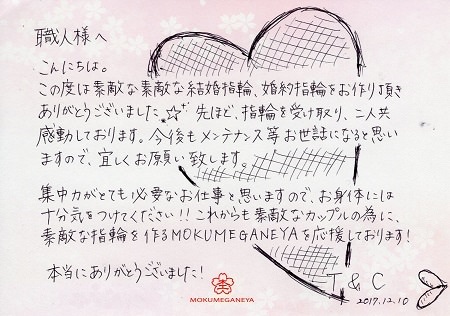 職人様へ
こんにちは。
この度は素敵な素敵な結婚指輪、婚約指輪をお作り頂き
ありがとうございました。☆ 先ほど、指輪を受け取り、二人共
感動しております。今後もメンテナンス等お世話になると思い
ますので、宜しくお願い致します。
集中力がとても必要なお仕事と思いますので、お身体には
十分気をつけてください!! これからも素敵なカップルの為に、
素敵な指輪を作るMOKUMEGANEYAを応援しております!
本当にありがとうございました!
T & C
2017.12.10
MOKUMEGANEYA